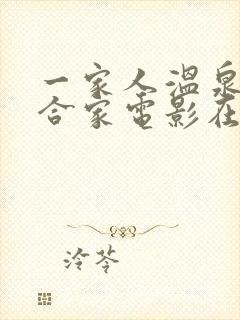 一家人温泉
合家电影在
泠芩